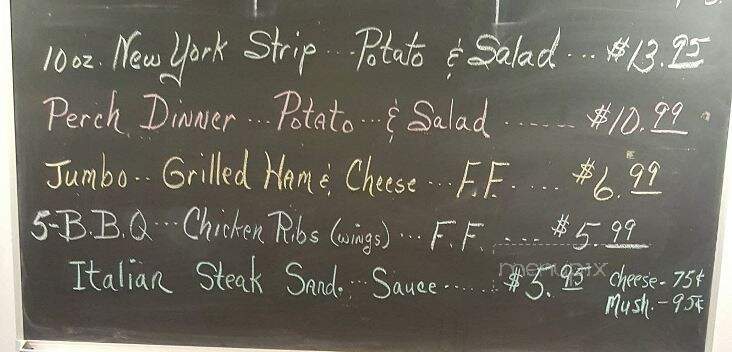 10 oz. New York Strip ... Potato & Salad ... $13.95
Perch Dinner ... Potato ... & Salad ...... $10.99
Jumbo .. Grilled Ham & Cheese ... F.F. .... $6.99
5-B.B.Q ... Chicken Ribs (wings) ... F.F. .... $5.99
Italian Steak Sand. .. Sauce ...... $5.95 Cheese - 75¢
Mush. - 95¢
menupix